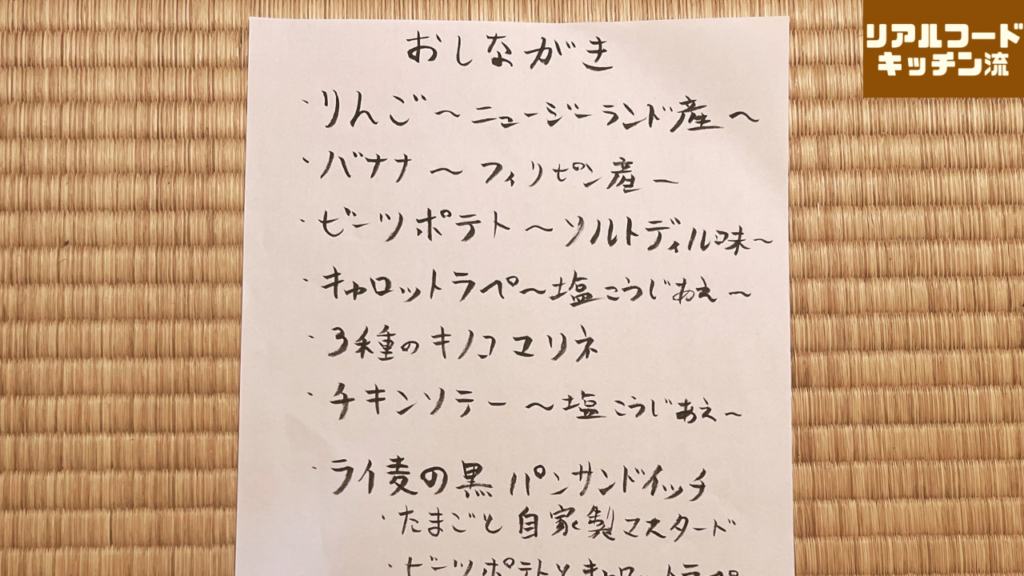 リアルフード
キッチン流
おしながき
・りんご～ニュージーランド産～
・バナナ～フィリピン産～
・ビーツポテト～ソルトディル味～
・キャロットラペ～塩こうじあえ～
・3種のキノコマリネ
・チキンソテー～塩こうじあえ～
・ライ麦の黒パンサンドイッチ
・たまごと自家製マスタード
・ビーツポテトとキャロットラペ